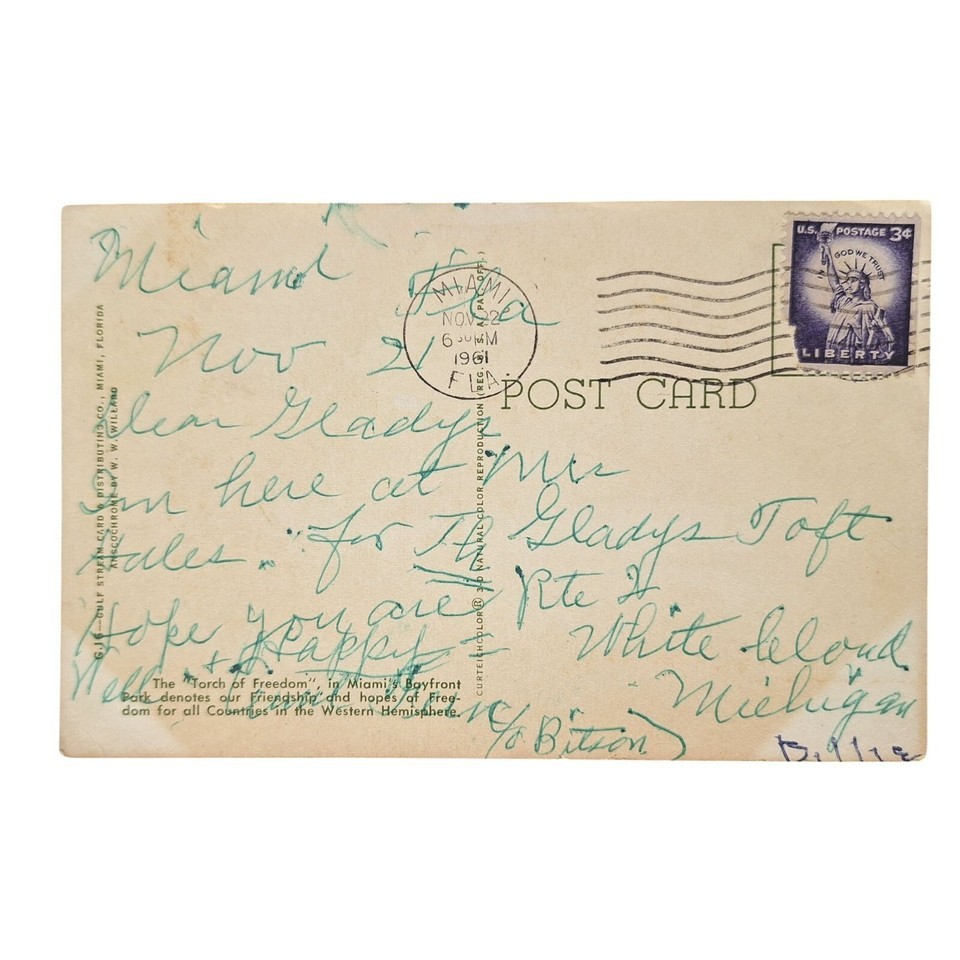 Miami Fla
Nov 21
Dear Gladys
Im here at
Hales. for Th
Hope you are
Well + Happy
MIAMI
NOV 22
6 PM
1961
FLA
U.S. POSTAGE 3¢
IN GOD WE TRUST
LIBERTY
POST CARD
Mrs
Gladys Toft
Rte 2
White Cloud
Michigan
c/o Bitson
Billie
G.16—GULF STREAM CARD & DISTRIBUTING CO., MIAMI, FLORIDA
ANSCOCHROME BY W. W. WILLARD
CURTEICHCOLOR® 3-D NATURAL COLOR REPRODUCTION (REG. U.S.A. PAT. OFF.)
The "Torch of Freedom", in Miami's Bayfront
Park denotes our Friendship and hopes of Free-
dom for all Countries in the Western Hemisphere.